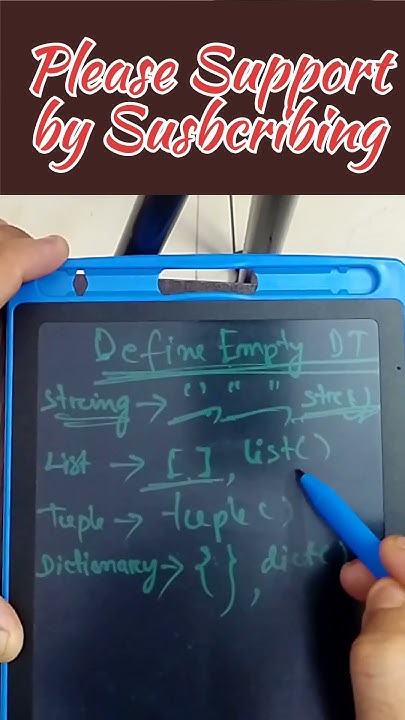 Please Support
by Susbcribing
Define Empty DT
string → ' ' , " " , str()
List → [ ] , list()
Tuple → tuple()
Dictionary → { } , dict()